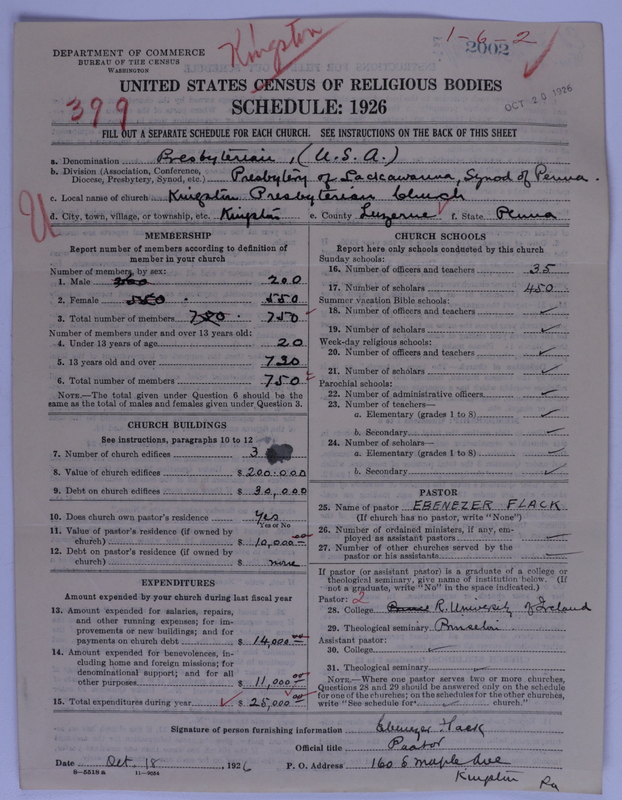 Kingston
1-6-2
2002
DEPARTMENT OF COMMERCE
BUREAU OF THE CENSUS
WASHINGTON
UNITED STATES CENSUS OF RELIGIOUS BODIES
SCHEDULE: 1926
OCT 20 1926
399
FILL OUT A SEPARATE SCHEDULE FOR EACH CHURCH. SEE INSTRUCTIONS ON THE BACK OF THIS SHEET
a. Denomination Presbyterian, (U.S.A.)
b. Division (Association, Conference, Diocese, Presbytery, Synod, etc.) Presbytery of Lackawanna, Synod of Penna.
c. Local name of church Kingston Presbyterian Church
d. City, town, village, or township, etc. Kingston e. County Luzerne f. State Penna
MEMBERSHIP
Report number of members according to definition of
member in your church
Number of members by sex:
1. Male 200
2. Female 550
3. Total number of members 750
Number of members under and over 13 years old:
4. Under 13 years of age 20
5. 13 years old and over 730
6. Total number of members 750
NOTE.—The total given under Question 6 should be
same as the total of males and females given under Question 3.
CHURCH BUILDINGS
See instructions, paragraphs 10 to 12
7. Number of church edifices 3
8. Value of church edifices $ 200.000
9. Debt on church edifices $ 30,000
10. Does church own pastor's residence Yes
Yes or No
11. Value of pastor's residence (if owned by
church) $ 10,000 00
12. Debt on pastor's residence (if owned by
church) $ none
EXPENDITURES
Amount expended by your church during last fiscal year
13. Amount expended for salaries, repairs,
and other running expenses; for im-
provements or new buildings; and for
payments on church debt $ 14,000 00
14. Amount expended for benevolences, in-
cluding home and foreign missions; for
denominational support; and for all
other purposes $ 11,000 00
15. Total expenditures during year $ 25,000 00
CHURCH SCHOOLS
Report here only schools conducted by this church
Sunday schools:
16. Number of officers and teachers 35
17. Number of scholars 450
Summer vacation Bible schools:
18. Number of officers and teachers
19. Number of scholars
Week-day religious schools:
20. Number of officers and teachers
21. Number of scholars
Parochial schools:
22. Number of administrative officers
23. Number of teachers—
a. Elementary (grades 1 to 8)
b. Secondary
24. Number of scholars—
a. Elementary (grades 1 to 8)
b. Secondary
PASTOR
25. Name of pastor EBENEZER FLACK
(If church has no pastor, write "None")
26. Number of ordained ministers, if any, em-
ployed as assistant pastors
27. Number of other churches served by the
pastor or his assistants
If pastor (or assistant pastor) is a graduate of a college or
theological seminary, give name of institution below. (If
not a graduate, write "No" in the space indicated.)
Pastor: 2
28. College R. University of Ireland
29. Theological seminary Princeton
Assistant pastor:
30. College
31. Theological seminary
NOTE.—Where one pastor serves two or more churches,
Questions 28 and 29 should be answered only on the schedule
for one of the churches; on the schedules for the other churches,
write "See schedule for church."
Signature of person furnishing information Ebenezer Flack
Official title Pastor
Date Oct. 18, 1926 P. O. Address 160 S Maple Ave
8—5518 a 11—9054 Kingston Pa